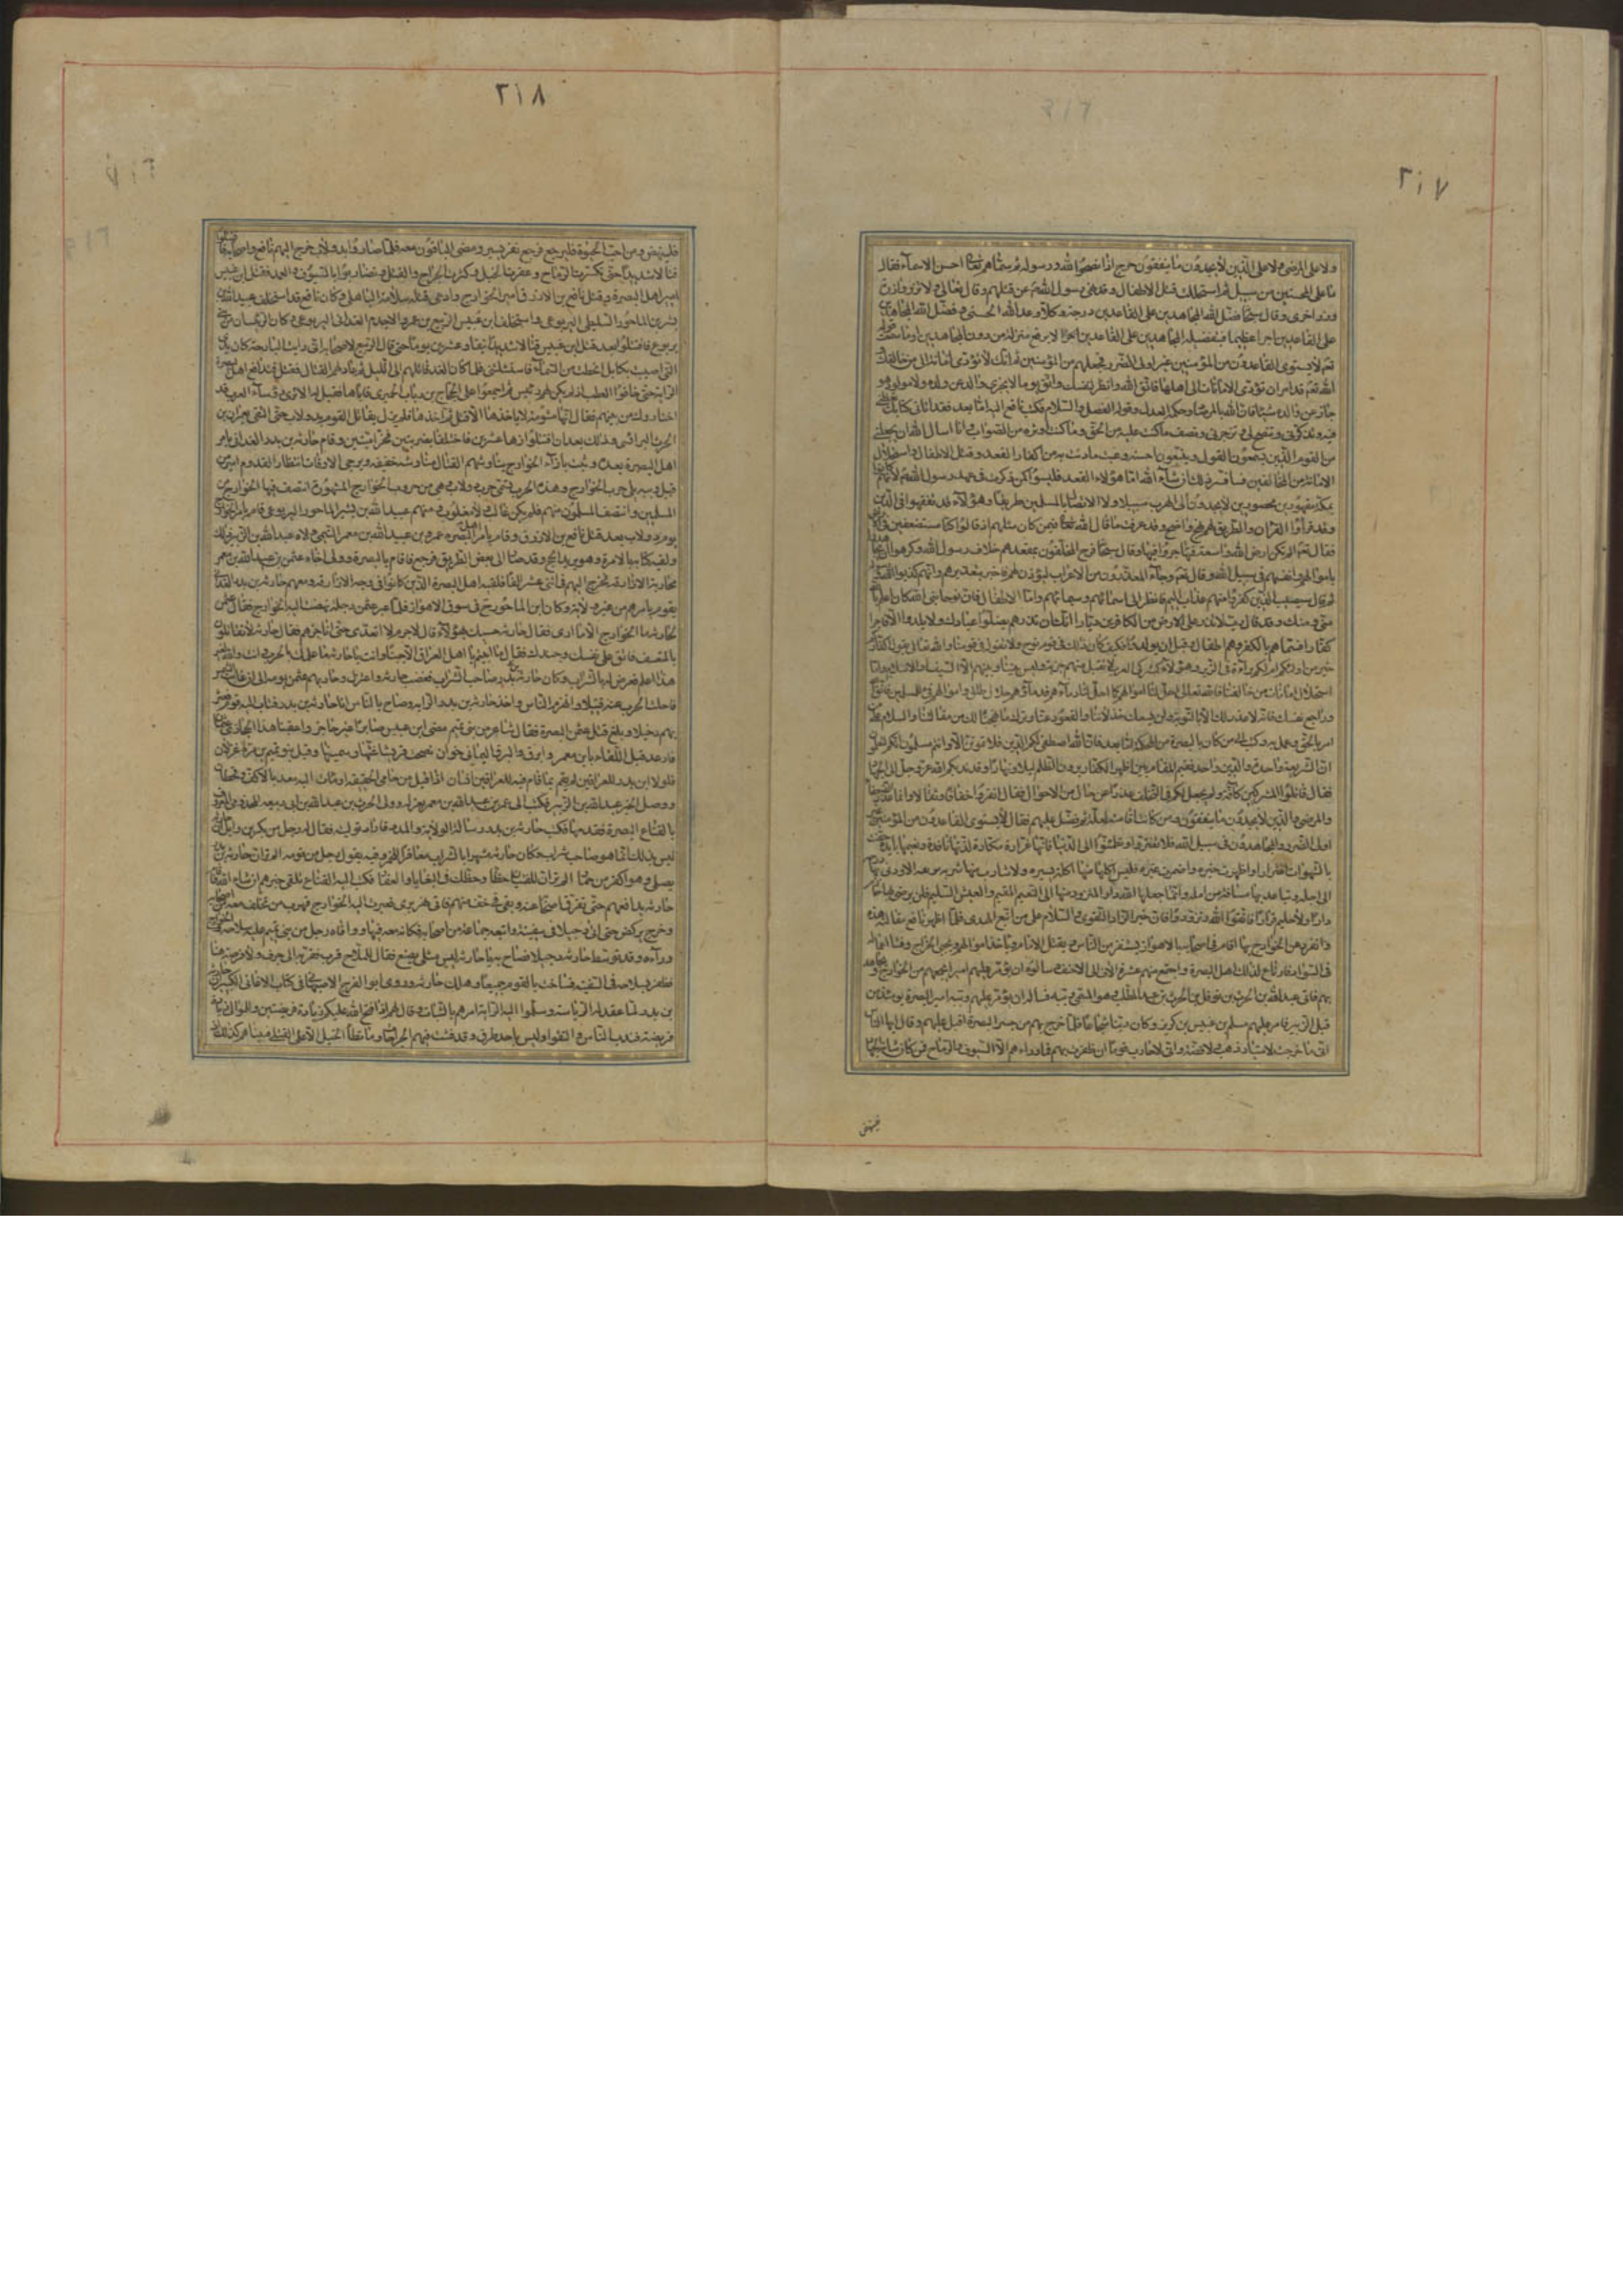 ٢١٧
ولا على المرضى ولا على الذين لا يجدون ما ينفقون حرج اذا نصحوا لله ورسوله ثم سماهم تعالى احسن الاسماء فقال
ما على المحسنين من سبيل ثم استحللت قتل الاطفال وقد نهى رسول الله عن قتلهم وقال تعالى ولا تزر وازرة
وزر اخرى وقال سبحانه فضل الله المجاهدين على القاعدين درجة وكلا وعد الله الحسنى وفضل الله المجاهدين
على القاعدين اجرا عظيما فتفضيله المجاهدين على القاعدين لا يرفع منزلة من دون المجاهدين اوما سمعت قوله
تعالى لا يستوى القاعدون من المؤمنين غير اولى الضرر فجعلهم من المؤمنين ثم انك لا تؤدى امانة الى من خالفك
الله تعالى قد امر ان تؤدى الامانات الى اهلها فاتق الله وانظر لنفسك واتق يوما لا يجزى والد عن ولده ولا مولود هو
جاز عن والده شيئا فان الله بالمرصاد وحكمه العدل وقوله الفصل والسلام فكتب نافع اليه اما بعد فقد اتانى كتابك تعظنى
فيه وتذكرنى وتنصح لى وتزجرنى وتصف ما كنت عليه من الحق وما كنت اوثره من الصواب وانا اسال الله ان يجعلنى
من القوم الذين يستمعون القول فيتبعون احسنه وعبت ما دنت به من اكفار القعد وقتل الاطفال واستحلال
الامانة من المخالفين وسافسر ذلك ان شاء الله اما هؤلاء القعد فليسوا كمن ذكرت فى عهد رسول الله لانهم كانوا
بمكة مقهورين محصورين لا يجدون الى الهرب سبيلا ولا الى الاتصال بالمسلمين طريقا وهؤلاء قد تفقهوا فى الدين
وقد قراوا القران والطريق لهم نهج واضح وقد عرفت ما قال الله تعالى فيمن كان مثلهم اذ قالوا كنا مستضعفين فى الارض
فقال الم تكن ارض الله واسعة فتهاجروا فيها وقال سبحانه فرح المخلفون بمقعدهم خلاف رسول الله وكرهوا ان يجاهدوا
باموالهم وانفسهم فى سبيل الله وقال تعالى وجاء المعذرون من الاعراب ليؤذن لهم فاخبر بتعذيرهم وانهم كذبوا الله ورسوله
ثم قال سيصيب الذين كفروا منهم عذاب اليم فانظر الى اسمائهم وسماتهم واما الاطفال فان نوحا نبى الله كان اعلم بالله
منى ومنك وقد قال رب لا تذر على الارض من الكافرين ديارا انك ان تذرهم يضلوا عبادك ولا يلدوا الا فاجرا
كفارا فسماهم بالكفر وهم اطفال وقبل ان يولدوا فكيف كان ذلك فى قوم نوح ولا نقوله فى قومنا والله تعالى يقول اكفاركم
خير من اولئكم ام لكم براءة فى الزبر وهؤلاء كمشركى العرب لا تقبل منهم جزية وليس بيننا وبينهم الا السيف او الاسلام واما
استحلال امانات من خالفنا فان الله تعالى احل لنا اموالهم كما احل لنا دماءهم فدماؤهم حلال طلق واموالهم فىء للمسلمين فاتق الله
وراجع نفسك فانه لا عذر لك الا بالتوبة ولن يسعك خذلاننا والقعود عنا وترك ما نهجناه لك من مقالتنا والسلام على من
اقر بالحق وعمل به وكتب الى من كان بالبصرة من المحكمة اما بعد فان الله اصطفى لكم الدين فلا تموتن الا وانتم مسلمون انكم لتعلمون
ان الشريعة واحدة والدين واحد ففيم المقام بين اظهر الكفار يرون الظلم ليلا ونهارا وقد ندبكم الله عز وجل الى الجهاد
فقال قاتلوا المشركين كافة ولم يجعل لكم فى التخلف عذرا فى حال من الاحوال فقال انفروا خفافا وثقالا وانما عذر الضعفاء
والمرضى والذين لا يجدون ما ينفقون ومن كانت اقامته لعلة ثم فضل عليهم فقال لا يستوى القاعدون من المؤمنين غير
اولى الضرر والمجاهدون فى سبيل الله فلا تغتروا وتطمئنوا الى الدنيا فانها غرارة مكارة لذتها نافدة ونعيمها بائد حفت
بالشهوات اغترارا واظهرت حبرة واضمرت عبرة فليس اكل منها اكلة تسره ولا شارب منها شربة
الى اجله وتباعد بها مسافة من امله وانما جعلها الله دارا لمن تزود منها الى النعيم المقيم والعيش السليم فلن يرضى بها حازم
دارا ولا حليم قرارا فاتقوا الله وتزودوا فان خير الزاد التقوى والسلام على من اتبع الهدى فلما اظهر نافع مقالته هذه
وانفرد عن الخوارج بها اقام فى اصحابه بالاهواز يستعرض الناس ويقتل الاطفال وياخذ الاموال ويجبى الخراج وفشا عماله
فى السواد فارتاع لذلك اهل البصرة واجتمع منهم عشرة الاف الى الاحنف وسالوه ان يؤمر عليهم اميرا يحميهم من الخوارج ويجاهد
بهم فاتى عبد الله بن الحرث بن نوفل بن الحرث بن عبد المطلب وهو المسمى ببه فساله ان يؤمر عليهم وببه امير البصرة يومئذ من
قبل ابن الزبير فامر عليهم مسلم بن عبيس بن كريز وكان دينا شجاعا فلما خرج بهم من جسر البصرة اقبل عليهم وقال ايها الناس
انى ما خرجت لامتيار ذهب ولا فضة وانى لاحارب قوما ان ظفرت بهم فما وراءهم الا السيوف والرماح فمن كان شانه الجهاد
فلينهض
٢١٨
فلينهض ومن احب الحيوة فليرجع فرجع نفر يسير ومضى الباقون معه فلما صاروا بدولاب خرج اليهم نافع واصحابه فاقتتلوا
قتالا شديدا حتى تكسرت الرماح وعقرت الخيل وكثرت الجراح والقتل وتضاربوا بالسيوف والعمد فقتل ابن عبيس
امير اهل البصرة وقتل نافع بن الازرق امير الخوارج وادعى قتله سلامة الباهلى وكان نافع قد استخلف عبيد الله بن
بشير بن الماحوز السليطى اليربوعى واستخلف ابن عبيس الربيع بن عمرو الاجذم الغدانى اليربوعى وكان الرئيسان من بنى
يربوع فاقتتلوا بعد قتل ابن عبيس قتالا شديدا نيفا وعشرين يوما حتى قال الربيع لاصحابه انى رايت البارحة كان يدى
التى اصيبت بكابل انحطت من السماء فاستشلتنى فلما كان الغد قاتلهم الى الليل ثم عاودهم القتال فقتل فتدافع اهل البصرة
الراية حتى خافوا العطب اذ لم يكن لهم رئيس ثم اجمعوا على الحجاج بن باب الحميرى فاباها فقيل له الا ترى رؤساء العرب قد
اختاروك من بينهم فقال انها مشومة لا ياخذها احد الا قتل ثم اخذها فلم يزل يقاتل القوم بدولاب حتى التقى بعمران بن
الحرث الراسبى وذلك بعد ان اقتتلوا زهاء شهر فاختلفا ضربتين فخرا ميتين وقام حارثة بن بدر الغدانى بامر
اهل البصرة بعده وثبت بازاء الخوارج يناوشهم القتال مناوشة خفيفة ويزجى الاوقات انتظارا لقدوم امير من
قبل ببه يلى حرب الخوارج وهذه الحرب تسمى حرب دولاب وهى من حروب الخوارج المشهورة انتصف فيها الخوارج من
المسلمين وانتصف المسلمون منهم فلم يكن غالب ولا مغلوب ومنهم عبيد الله بن بشير بن الماحوز اليربوعى قام بامر الخوارج
يوم دولاب بعد قتل نافع بن الازرق وقام بامر اهل البصرة عمر بن عبيد الله بن معمر التيمى ولاه عبد الله بن الزبير ذلك
ولقيه كتابه بالامرة وهو يريد الحج وقد صار الى بعض الطريق فرجع فاقام بالبصرة وولى اخاه عثمن بن عبيد الله بن معمر
محاربة الازارقة فخرج اليهم فى اثنى عشر الفا فلقيه اهل البصرة الذين كانوا فى وجه الازارقة ومعهم حارثة بن بدر الغدانى
يقوم بامرهم عن غير ولاية وكان ابن الماحوز حينئذ فى سوق الاهواز فلما عبر عثمن دجيلا نهضت اليه الخوارج فقال عثمن
لحارثة ما الخوارج الا ما ارى فقال حارثة حسبك بهؤلاء قال لا جرم لا اتغدى حتى اناجزهم فقال حارثة ان هؤلاء لا يقاتلون
بالتعسف فابق على نفسك وجندك فقال ابيتم يا اهل العراق الا جبنا وانت يا حارثة ما علمك بالحرب انت والله بغير
هذا اعلم يعرض له بالشراب وكان حارثة بن بدر صاحب شراب فغضب حارثة واعتزل وحاربهم عثمن يومه الى ان غابت الشمس
فاجلت الحرب عنه قتيلا وانهزم الناس واخذ حارثة بن بدر الراية وصاح بالناس انا حارثة بن بدر فثاب اليه قومه فعبر
بهم دجيلا وبلغ قتل عثمن البصرة فقال شاعر من بنى تميم مضى ابن عبيس صابرا غير عاجز واعقبنا هذا الحجازى عثمن
فارعد من قبل اللقاء ابن معمر وابرق والبرق اليمانى خوان فضحت قريشا غثها وسمينها وقيل بنو تيم بن مرة عزلان
فلولا ابن بدر للعراقين لم يقم بما قام فيه للعراقين انسان اذا قيل من حامى الحقيقة اومات اليه معد بالاكف وقحطان
ووصل الخبر عبد الله بن الزبير فكتب الى عمر بن عبيد الله بن معمر بعزله وولى الحرث بن عبد الله بن ابى ربيعة المخزومى المعروف
بالقباع البصرة فقدمها فكتب حارثة بن بدر يساله الولاية والمدد فاراد توليته فقال له رجل من بكر بن وائل ان حارثة
ليس بذلك انما هو صاحب شراب وكان حارثة مستهترا بالشراب معاقرا للخمر وفيه يقول رجل من قومه الم تر ان حارثة بن بدر
يصلى وهو اكفر من حمار الم تر ان للفتيان حظا وحظك فى البغايا والعقار فكتب اليه القباع تكفى حربهم ان شاء الله فاقام
حارثة يدافعهم حتى تفرق اصحابه عنه وبقى فى خف منهم فاقام بنهر تيرى فعبرت اليه الخوارج فهرب من تخلف معه من اصحابه
وخرج يركض حتى اتى دجيلا فجلس فى سفينة واتبعه جماعة من اصحابه فكانوا معه فيها ووافاه رجل من بنى تميم عليه سلاحه والخوارج
وراءه وقد توسط حارثة دجيلا فصاح به يا حارثة ليس مثلى يضيع فقال للملاح قرب فقرب الى جرف ولا فرضة هناك
فطفر بسلاحه فى السفينة فساخت بالقوم جميعا وهلك حارثة وروى ابو الفرج الاصبهانى فى كتاب الاغانى الكبير ان حارثة
بن بدر لما عقدوا له الرياسة وسلموا اليه الراية امرهم بالثبات وقال لهم اذا فتح الله عليكم فللعرب زيادة فريضتين وللموالى زيادة
فريضة فندب الناس فالتقوا وليس باحد طرق وقد فشت فيهم الجراحات وما تطا الخيل الا على القتلى فبينا هم كذلك اذ